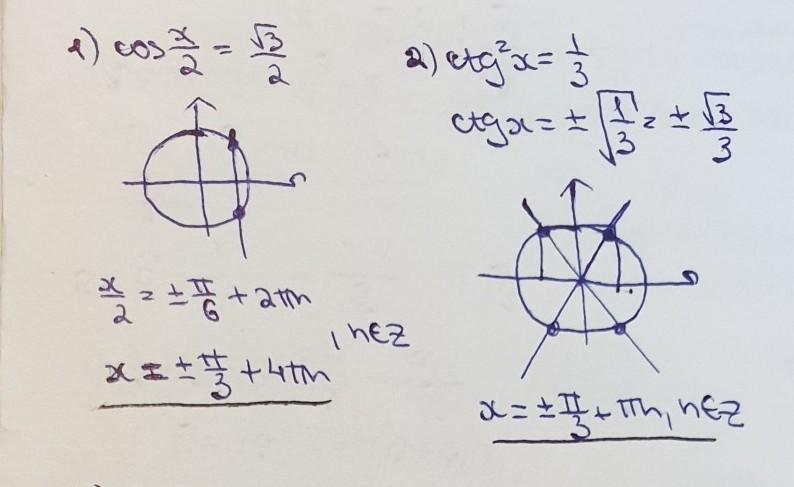 1) cos x/2 = √3/2
x/2 = ±π/6 + 2πn
x = ±π/3 + 4πn , n∈Z
2) ctg²x = 1/3
ctgx = ±√(1/3) = ±√3/3
x = ±π/3 + πn, n∈Z